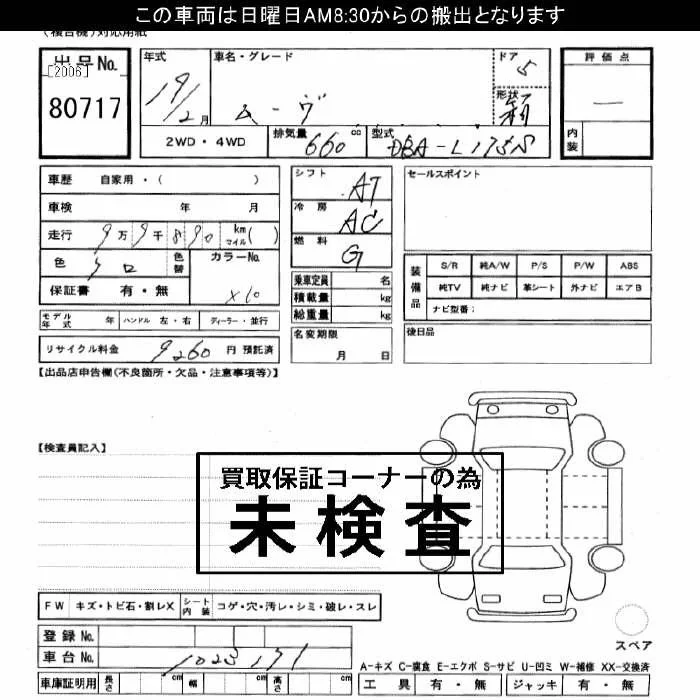 この車両は日曜日AM8:30からの搬出となります
(複合機)対応用紙
出品No. 年式 車名・グレード ドア 評価点
[2006] 5
80717 19/2月 ムーヴ 形状 —
内装
2WD・4WD 排気量 660cc 型式 DBA-L175S
車歴 自家用・( ) シフト AT セールスポイント
車検 年 月 冷房 AC
走行 9万9千890 km マイル( ) 燃料 G
色 シロ 色替 カラーNo.
装備品 S/R 純A/W P/S P/W ABS
保証書 有・無 X10 乗車定員 名 純TV 純ナビ 革シート 外ナビ エアB
積載量 kg ナビ型番:
モデル年式 年 ハンドル 左・右 ディーラー・並行 総重量 kg
リサイクル料金 9260円 預託済 名変期限 月 日 後日品
【出品店申告欄(不良箇所・欠品・注意事項等)】
【検査員記入】
買取保証コーナーの為
未検査
FW キズ・トビ石・割レX シート内装 コゲ・穴・汚レ・シミ・破レ・スレ
登録No.
スペア
車台No. 1023171
A-キズ C-腐食 E-エクボ S-サビ U-凹ミ W-補修 XX-交換済
車庫証明用 長さ cm 幅 cm 高さ cm 工具 有・無 ジャッキ 有・無